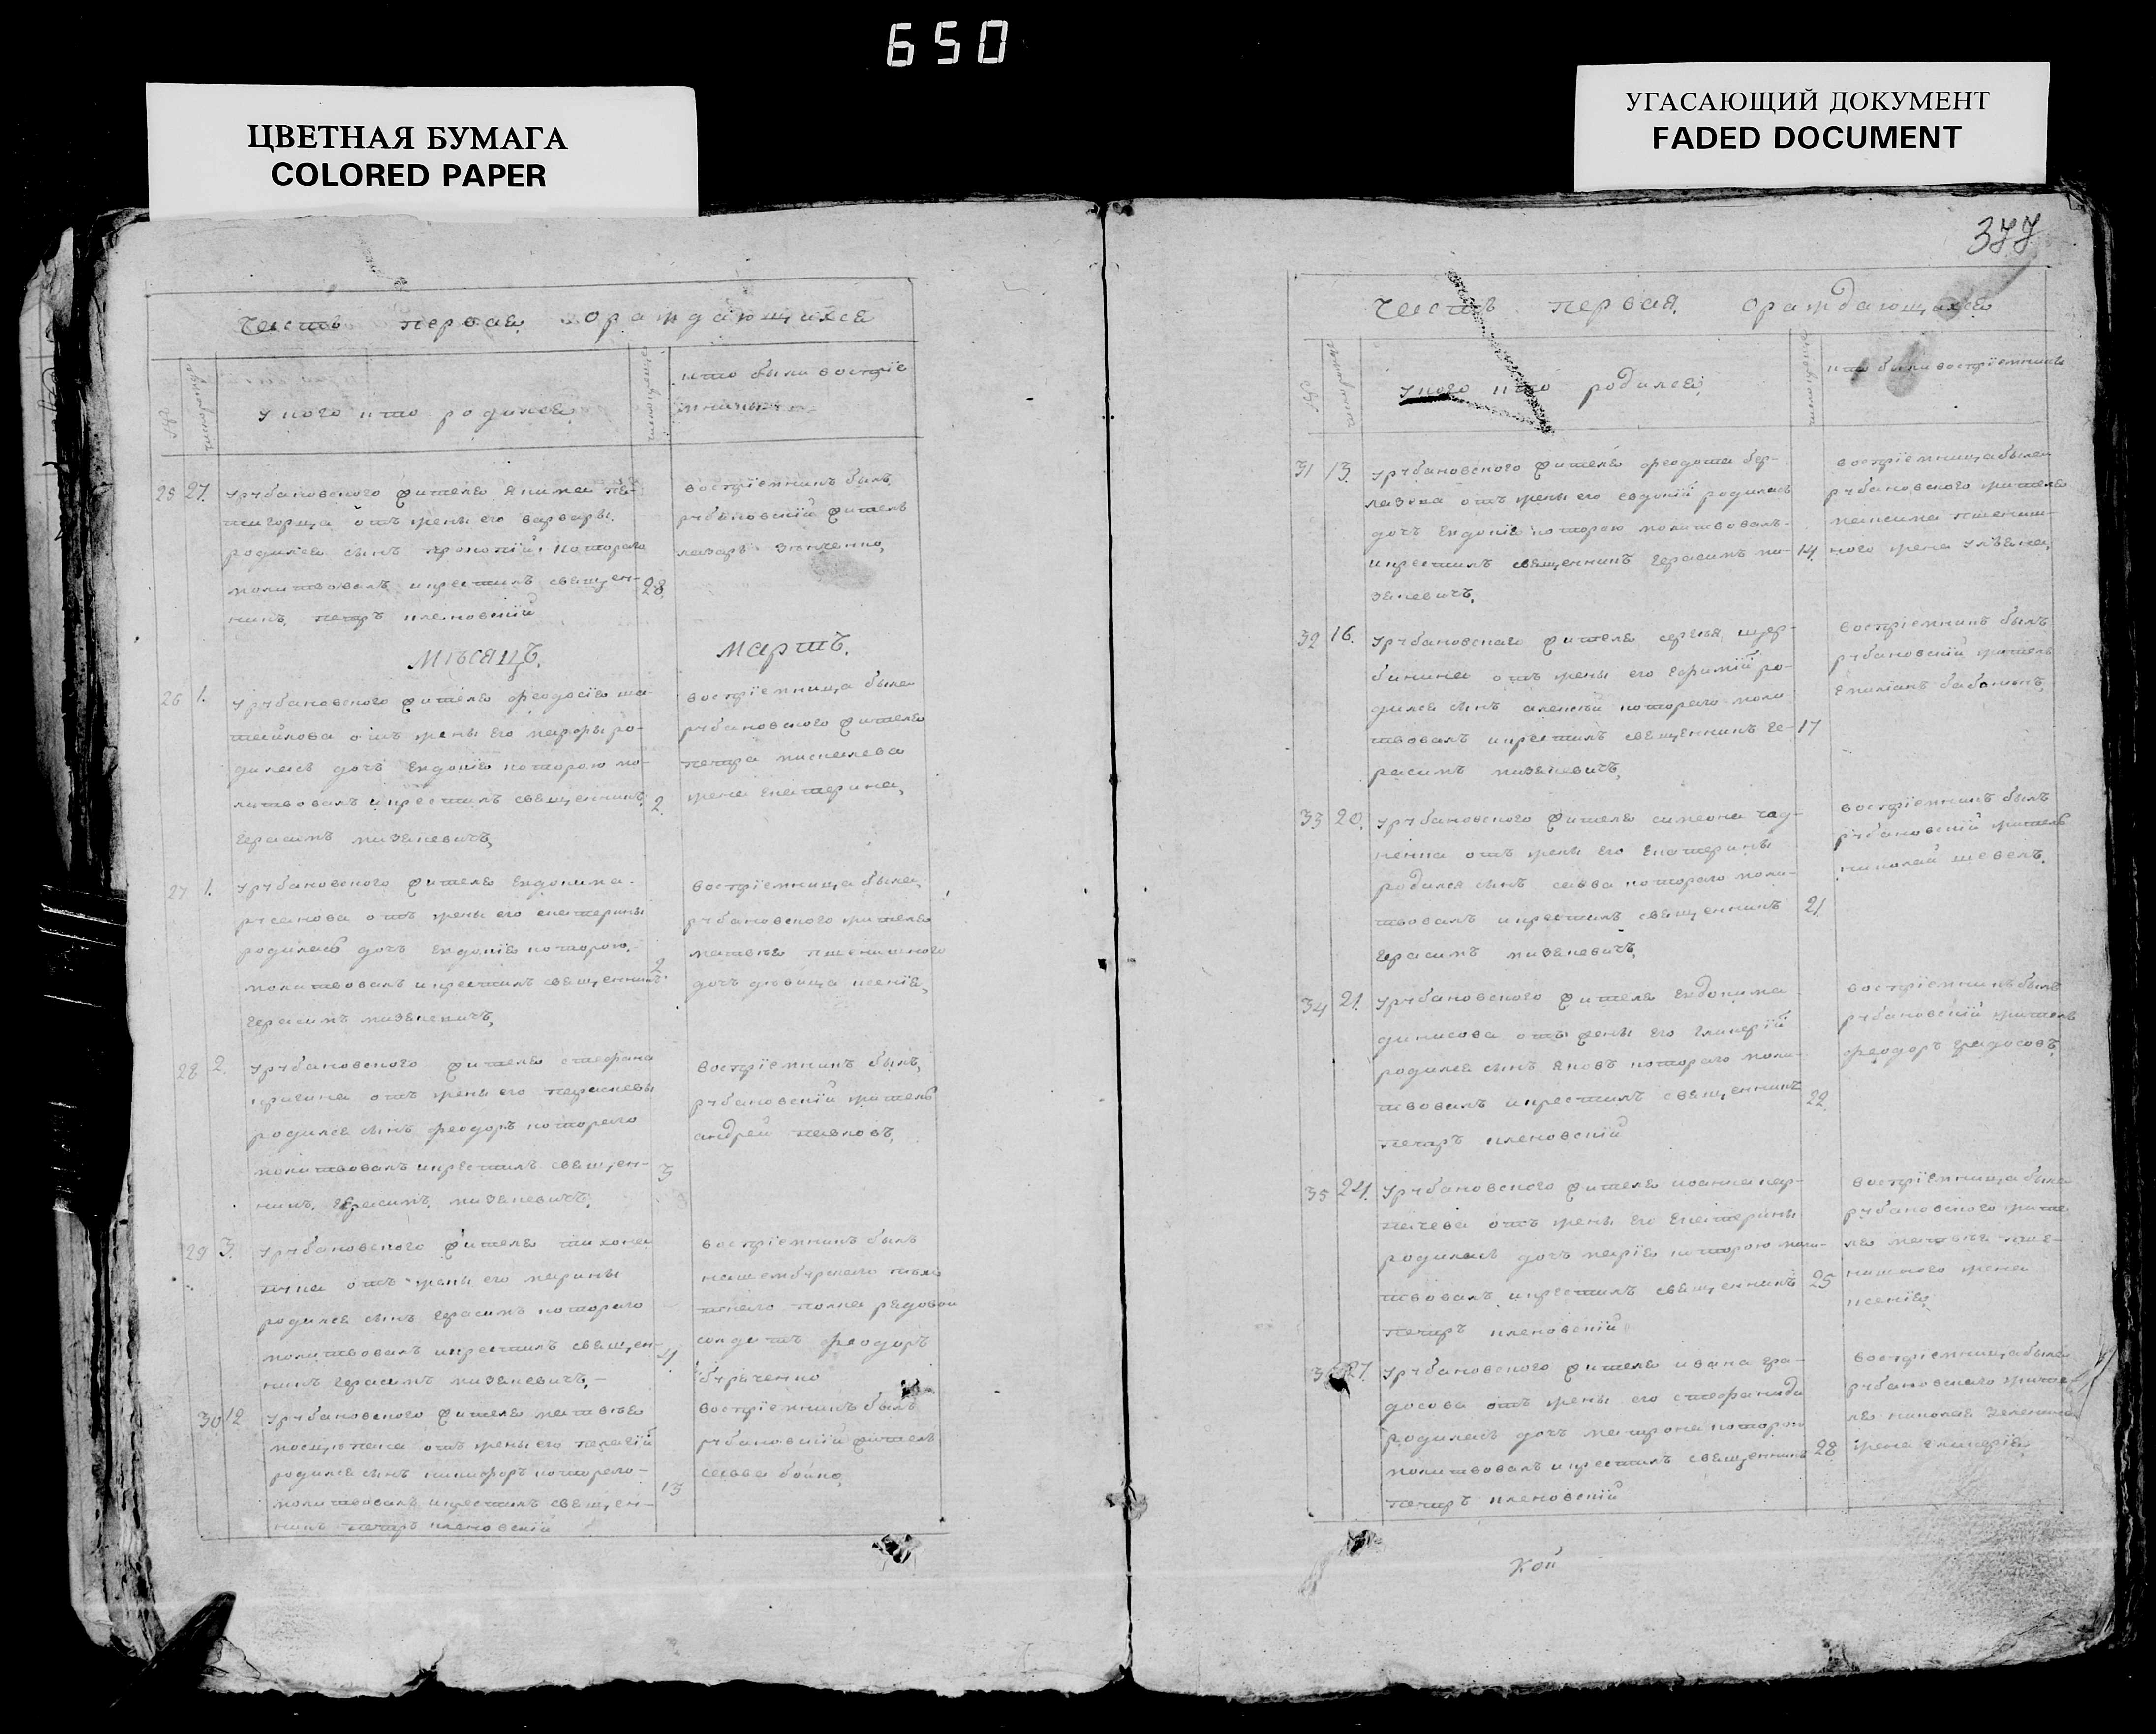 650
ЦВЕТНАЯ БУМАГА
COLORED PAPER
УГАСАЮЩИЙ ДОКУМЕНТ
FADED DOCUMENT
377
часть первая ораждающихся
у кого кто родился
кто были воспріе
мники
25 27. урубановского жителя якима
отъ жены его варвары
родился сынъ прокопій котораго
молитвовалъ и крестилъ священ-
28.
никъ петръ клановскій
воспріемникъ былъ
рубановскій жителъ
лазаръ
мѣсяцъ. мартъ.
26 1. урубановского жителя феодосія ша-
отъ жены его ро-
диласъ дочъ евдокія которою мо-
литвовалъ и крестилъ священникъ
2.
герасимъ мизкевичъ
воспріемница была
рубановского жителя
петра киселева
жена екатерина
27 1. урубановского жителя евдокима
русанова отъ жены его екатерины
родиласъ дочъ евдокія которою
2.
молитвовалъ и крестилъ священникъ
герасимъ мизкевичъ
воспріемница была
рубановского жителя
матвѣя пшенишного
дочъ дѣвица ксенія
28 2. урубановского жителя стефана
отъ жены его параскевы
родился сынъ феодоръ котораго
молитвовалъ и крестилъ священ-
3
никъ герасимъ мизкевичъ
воспріемникъ былъ
рубановскій жителъ
андрей павловъ
29 3. урубановского жителя тихона
отъ жены его марины
родился сынъ герасимъ котораго
молитвовалъ и крестилъ священ-
4
никъ герасимъ мизкевичъ
воспріемникъ былъ
полка рядовой
солдатъ феодоръ
30 12 урубановского жителя матвѣя
отъ жены его пелагій
родился сынъ никифоръ котораго
13
молитвовалъ и крестилъ священ-
никъ петръ клановскій
воспріемникъ былъ
рубановскій жителъ
савва бойко
часть первая ораждающихся
у кого кто родился
кто были воспріемники
31 13. урубановского жителя феодота бер-
отъ жены его евдокій родиласъ
дочъ евдокія которою молитвовалъ
и крестилъ священникъ герасимъ ми-
14.
зкевичъ
воспріемница была
рубановского жителя
максима пшениш-
ного жена уліяна
32 16. урубановскаго жителя сергѣя щер-
бинина отъ жены его ефимій ро-
дился сынъ алексѣй котораго моли
твовалъ и крестилъ священникъ ге-
17
расимъ мизкевичъ
воспріемникъ былъ
рубановскій жителъ
емиліанъ
33 20. урубановского жителя симеона гад-
отъ жены его екатерины
родился сынъ савва котораго моли-
твовалъ и крестилъ священникъ
21.
герасимъ мизкевичъ
воспріемникъ былъ
рубановскій жителъ
николай шевелъ
34 21. урубановского жителя евдокима
динисова отъ жены его гликерій
родился сынъ яковъ котораго моли-
твовалъ и крестилъ священникъ
22.
петръ клановскій
воспріемникъ былъ
рубановскій жителъ
феодоръ градосовъ
35 24. урубановского жителя иоанна кар-
отъ жены его екатерины
родиласъ дочъ марія которою моли-
твовалъ и крестилъ священникъ
25
петръ клановскій
воспріемница была
рубановского жите
ля матвѣя пше-
нишного жена
ксенія
36 27. урубановского жителя ивана гра-
досова отъ жены его стефанида
родиласъ дочъ матрона которою
молитвовалъ и крестилъ священникъ
28
петръ клановскій
воспріемница была
рубановского жите-
ля николая
жена гликерія